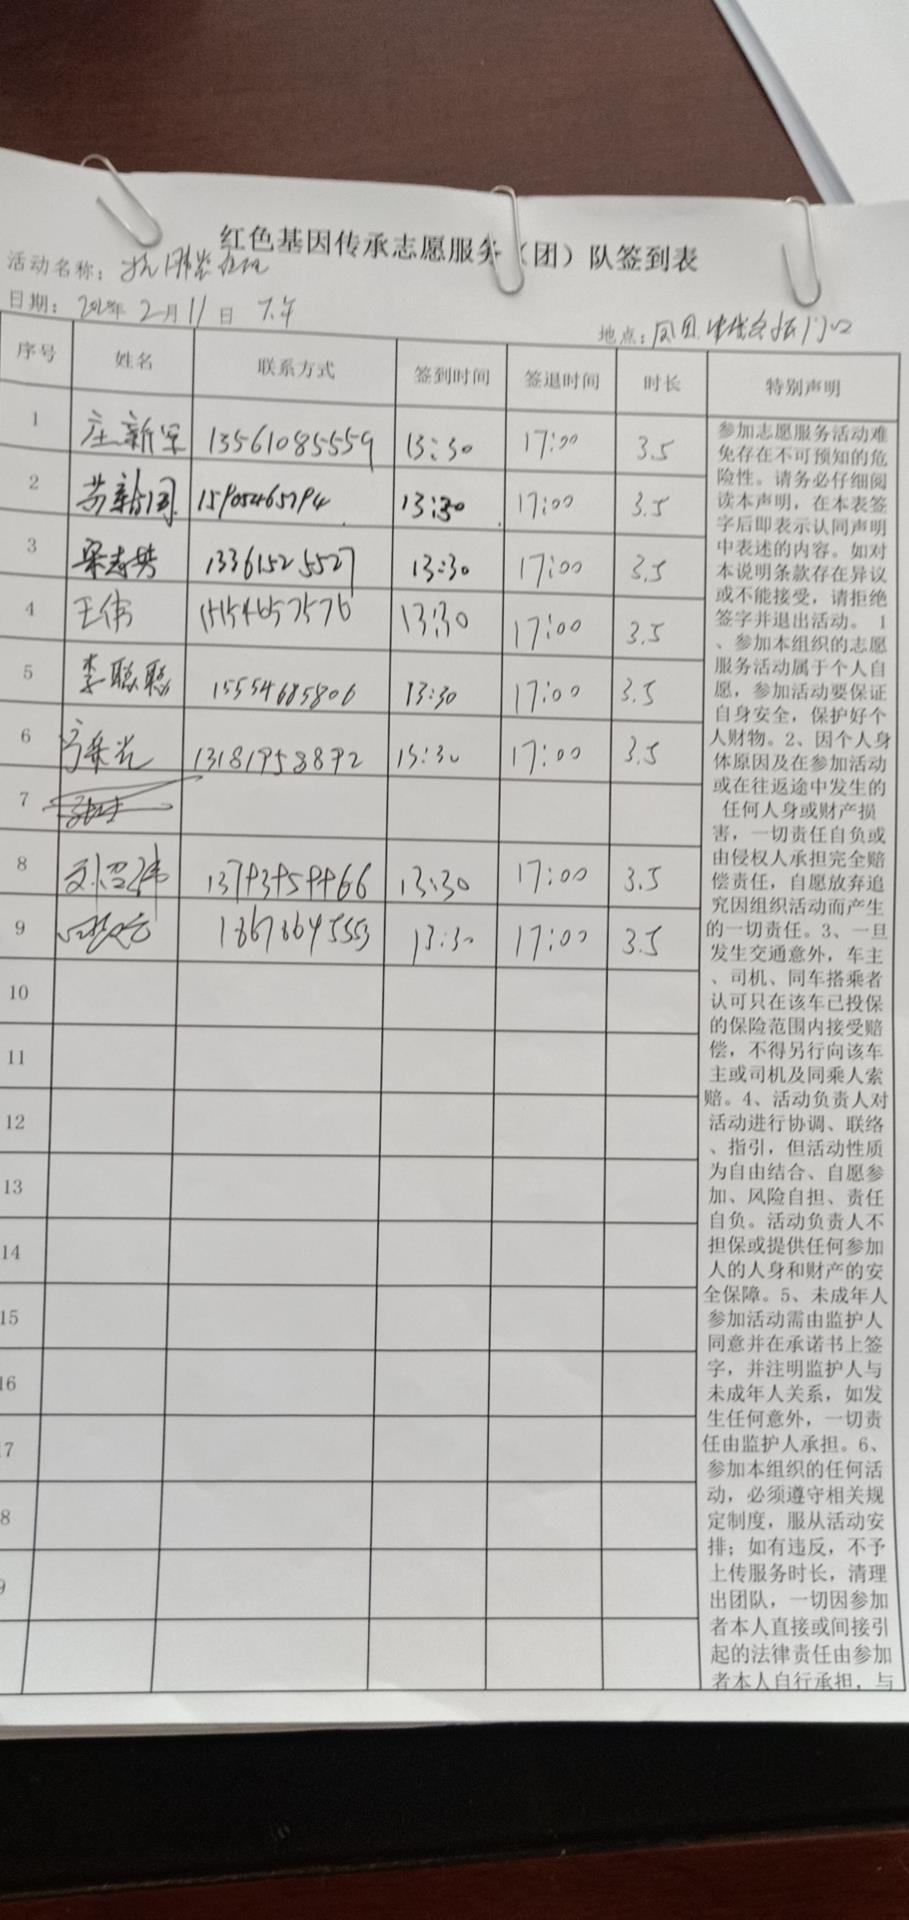 红色基因传承志愿服务（团）队签到表
活动名称：
日期：2020年 2月11日 下午
地点：
序号 姓名 联系方式 签到时间 签退时间 时长 特别声明
1 庄新军 13561085559 13:30 17:00 3.5
2 苏新闯 15905465794 13:30 17:00 3.5
3 13361525527 13:30 17:00 3.5
4 王伟 15154657576 13:30 17:00 3.5
5 李聪聪 15554685806 13:30 17:00 3.5
6 13181958892 13:30 17:00 3.5
7
8 13793959466 13:30 17:00 3.5
9 13:30 17:00 3.5
10
11
12
13
14
15
16
17
8
9
参加志愿服务活动难
免存在不可预知的危
险性。请务必仔细阅
读本声明，在本表签
字后即表示认同声明
中表述的内容。如对
本说明条款存在异议
或不能接受，请拒绝
签字并退出活动。 1
、参加本组织的志愿
服务活动属于个人自
愿，参加活动要保证
自身安全，保护好个
人财物。2、因个人身
体原因及在参加活动
或在往返途中发生的
任何人身或财产损
害，一切责任自负或
由侵权人承担完全赔
偿责任，自愿放弃追
究因组织活动而产生
的一切责任。3、一旦
发生交通意外，车主
、司机、同车搭乘者
认可只在该车已投保
的保险范围内接受赔
偿，不得另行向该车
主或司机及同乘人索
赔。4、活动负责人对
活动进行协调、联络
、指引，但活动性质
为自由结合、自愿参
加、风险自担、责任
自负。活动负责人不
担保或提供任何参加
人的人身和财产的安
全保障。5、未成年人
参加活动需由监护人
同意并在承诺书上签
字，并注明监护人与
未成年人关系，如发
生任何意外，一切责
任由监护人承担。6、
参加本组织的任何活
动，必须遵守相关规
定制度，服从活动安
排；如有违反，不予
上传服务时长，清理
出团队，一切因参加
者本人直接或间接引
起的法律责任由参加
者本人自行承担，与